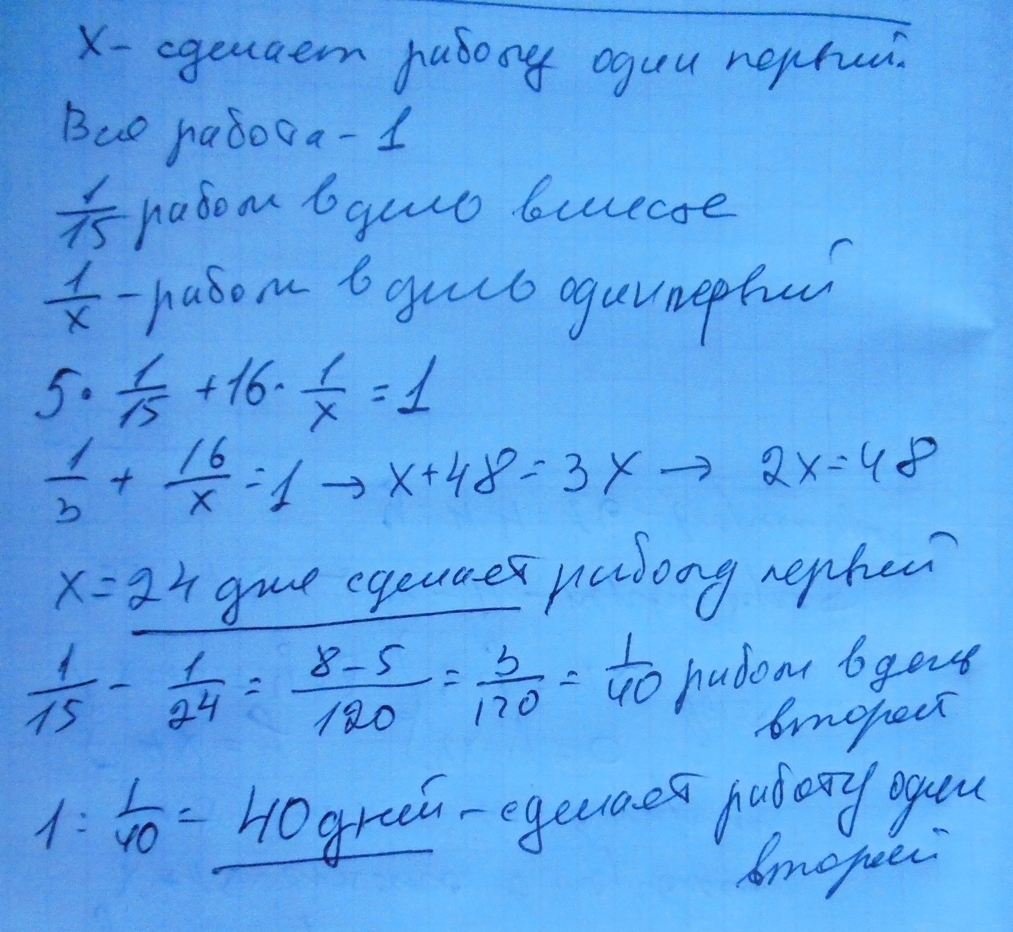 X - сделает работу один первый.
Вся работа - 1
1/15 работы в день вместе
1/x - работы в день один первый
5 · 1/15 + 16 · 1/x = 1
1/3 + 16/x = 1 → x + 48 = 3x → 2x = 48
x = 24 дня сделает работу первый
1/15 - 1/24 = (8 - 5)/120 = 3/120 = 1/40 работы в день
второй
1 : 1/40 = 40 дней - сделает работу один
второй